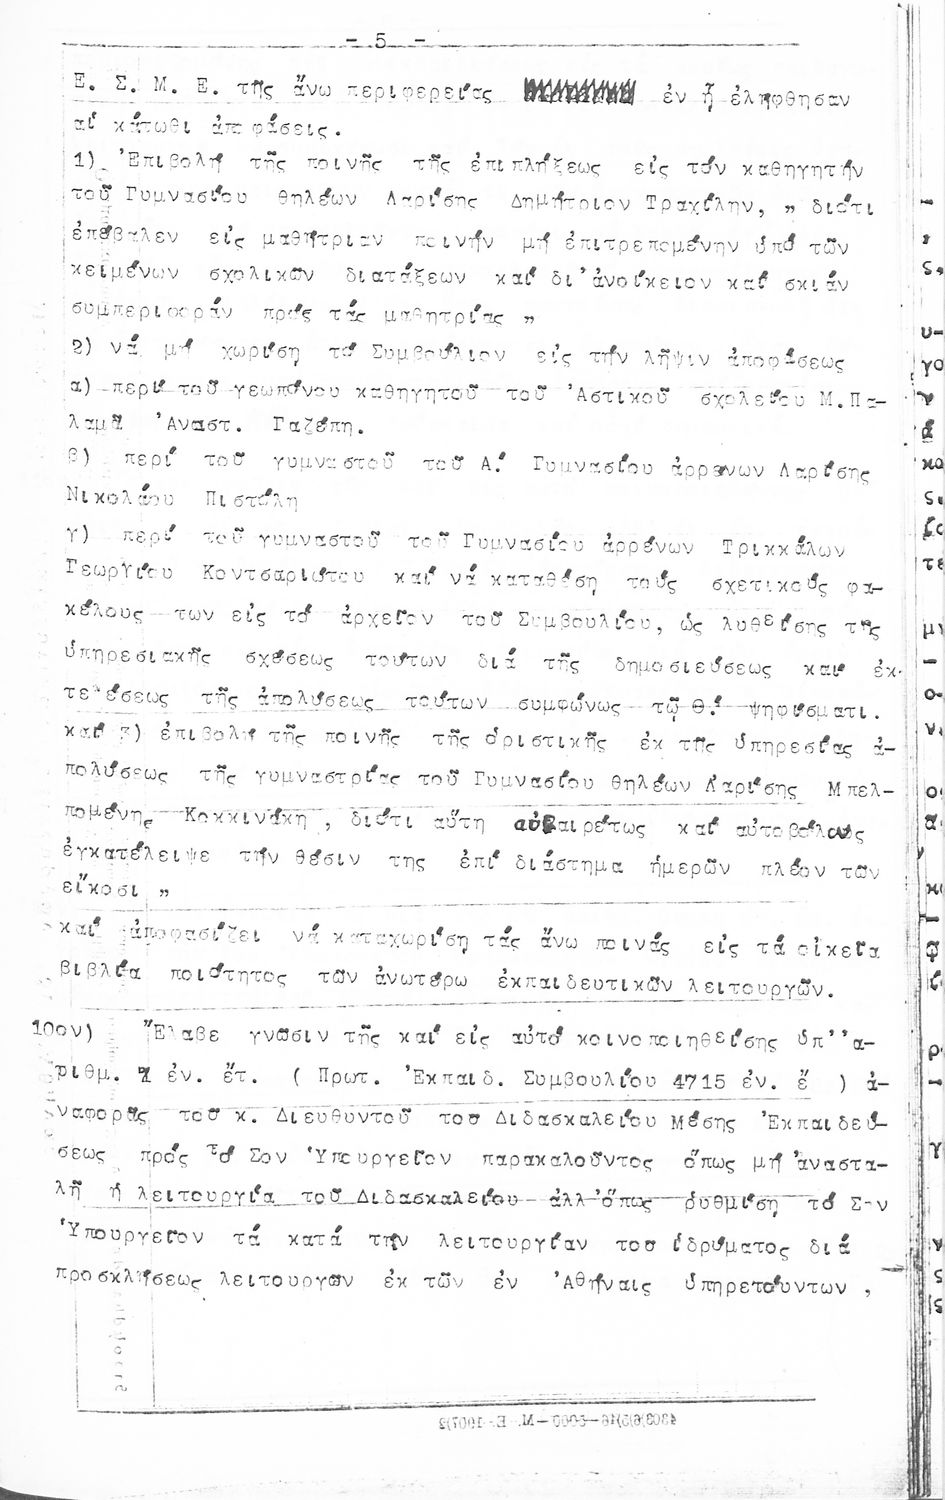 - 5 -
Ε. Σ. Μ. Ε. τῆς ἄνω περιφερείας ἐν ᾗ ἐλήφθησαν
αἱ κάτωθι ἀποφάσεις.
1) Ἐπιβολή τῆς ποινῆς τῆς ἐπιπλήξεως εἰς τόν καθηγητήν
τοῦ Γυμνασίου θηλέων Λαρίσης Δημήτριον Τραχίλην, „ διότι
ἐπέβαλεν εἰς μαθήτριαν ποινήν μή ἐπιτρεπομένην ὑπό τῶν
κειμένων σχολικῶν διατάξεων καί δι'ἀνοίκειον καί σκιάν
συμπεριφοράν πρός τάς μαθητρίας „
2) νά μή χωρίση τό Συμβούλιον εἰς τήν λῆψιν ἀποφάσεως
α) περί τοῦ γεωπόνου καθηγητοῦ τοῦ Ἀστικοῦ σχολείου Μ.Πα-
λαμᾶ Ἀναστ. Γαζέπη.
β) περί τοῦ γυμναστοῦ τοῦ Α.´ Γυμνασίου ἀρρένων Λαρίσης
Νικολάου Πιστόλη
γ) περί τοῦ γυμναστοῦ τοῦ Γυμνασίου ἀρρένων Τρικκάλων
Γεωργίου Κοντσαριώτου καί νά καταθέση τούς σχετικούς φα-
κέλους των εἰς τό ἀρχεῖον τοῦ Συμβουλίου, ὡς λυθείσης τῆς
ὑπηρεσιακῆς σχέσεως τούτων διά τῆς δημοσιεύσεως καί ἐκ-
τελέσεως τῆς ἀπολύσεως τούτων συμφώνως τῷ Θ.´ ψηφίσματι.
καί 3) ἐπιβολή τῆς ποινῆς τῆς ὁριστικῆς ἐκ τῆς ὑπηρεσίας ἀ-
πολύσεως τῆς γυμναστρίας τοῦ Γυμνασίου θηλέων Λαρίσης Μπελ-
πομένης Κοκκινάκη, διότι αὕτη αὐθαιρέτως καί αὐτοβούλως
ἐγκατέλειψε τήν θέσιν της ἐπί διάστημα ἡμερῶν πλέον τῶν
εἴκοσι „
καί ἀποφασίζει νά καταχωρίση τάς ἄνω ποινάς εἰς τά οἰκεῖα
βιβλία ποιότητος τῶν ἀνωτέρω ἐκπαιδευτικῶν λειτουργῶν.
10ον) Ἔλαβε γνῶσιν τῆς καί εἰς αὐτό κοινοποιηθείσης ὑπ''α-
ριθμ. 1 ἐν. ἔτ. ( Πρωτ. Ἐκπαιδ. Συμβουλίου 4715 ἐν. ἔ ) ἀ-
ναφορᾶς τοῦ κ. Διευθυντοῦ τοῦ Διδασκαλείου Μέσης Ἐκπαιδεύ-
σεως πρός τό Σον Ὑπουργεῖον παρακαλοῦντος ὅπως μή ἀναστα-
λῆ ἡ λειτουργία τοῦ Διδασκαλείου ἀλλ'ὅπως ρυθμίση τό Σον
Ὑπουργεῖον τά κατά τήν λειτουργίαν τοῦ ἱδρύματος διά
προσκλήσεως λειτουργῶν ἐκ τῶν ἐν Ἀθήναις ὑπηρετούντων ,